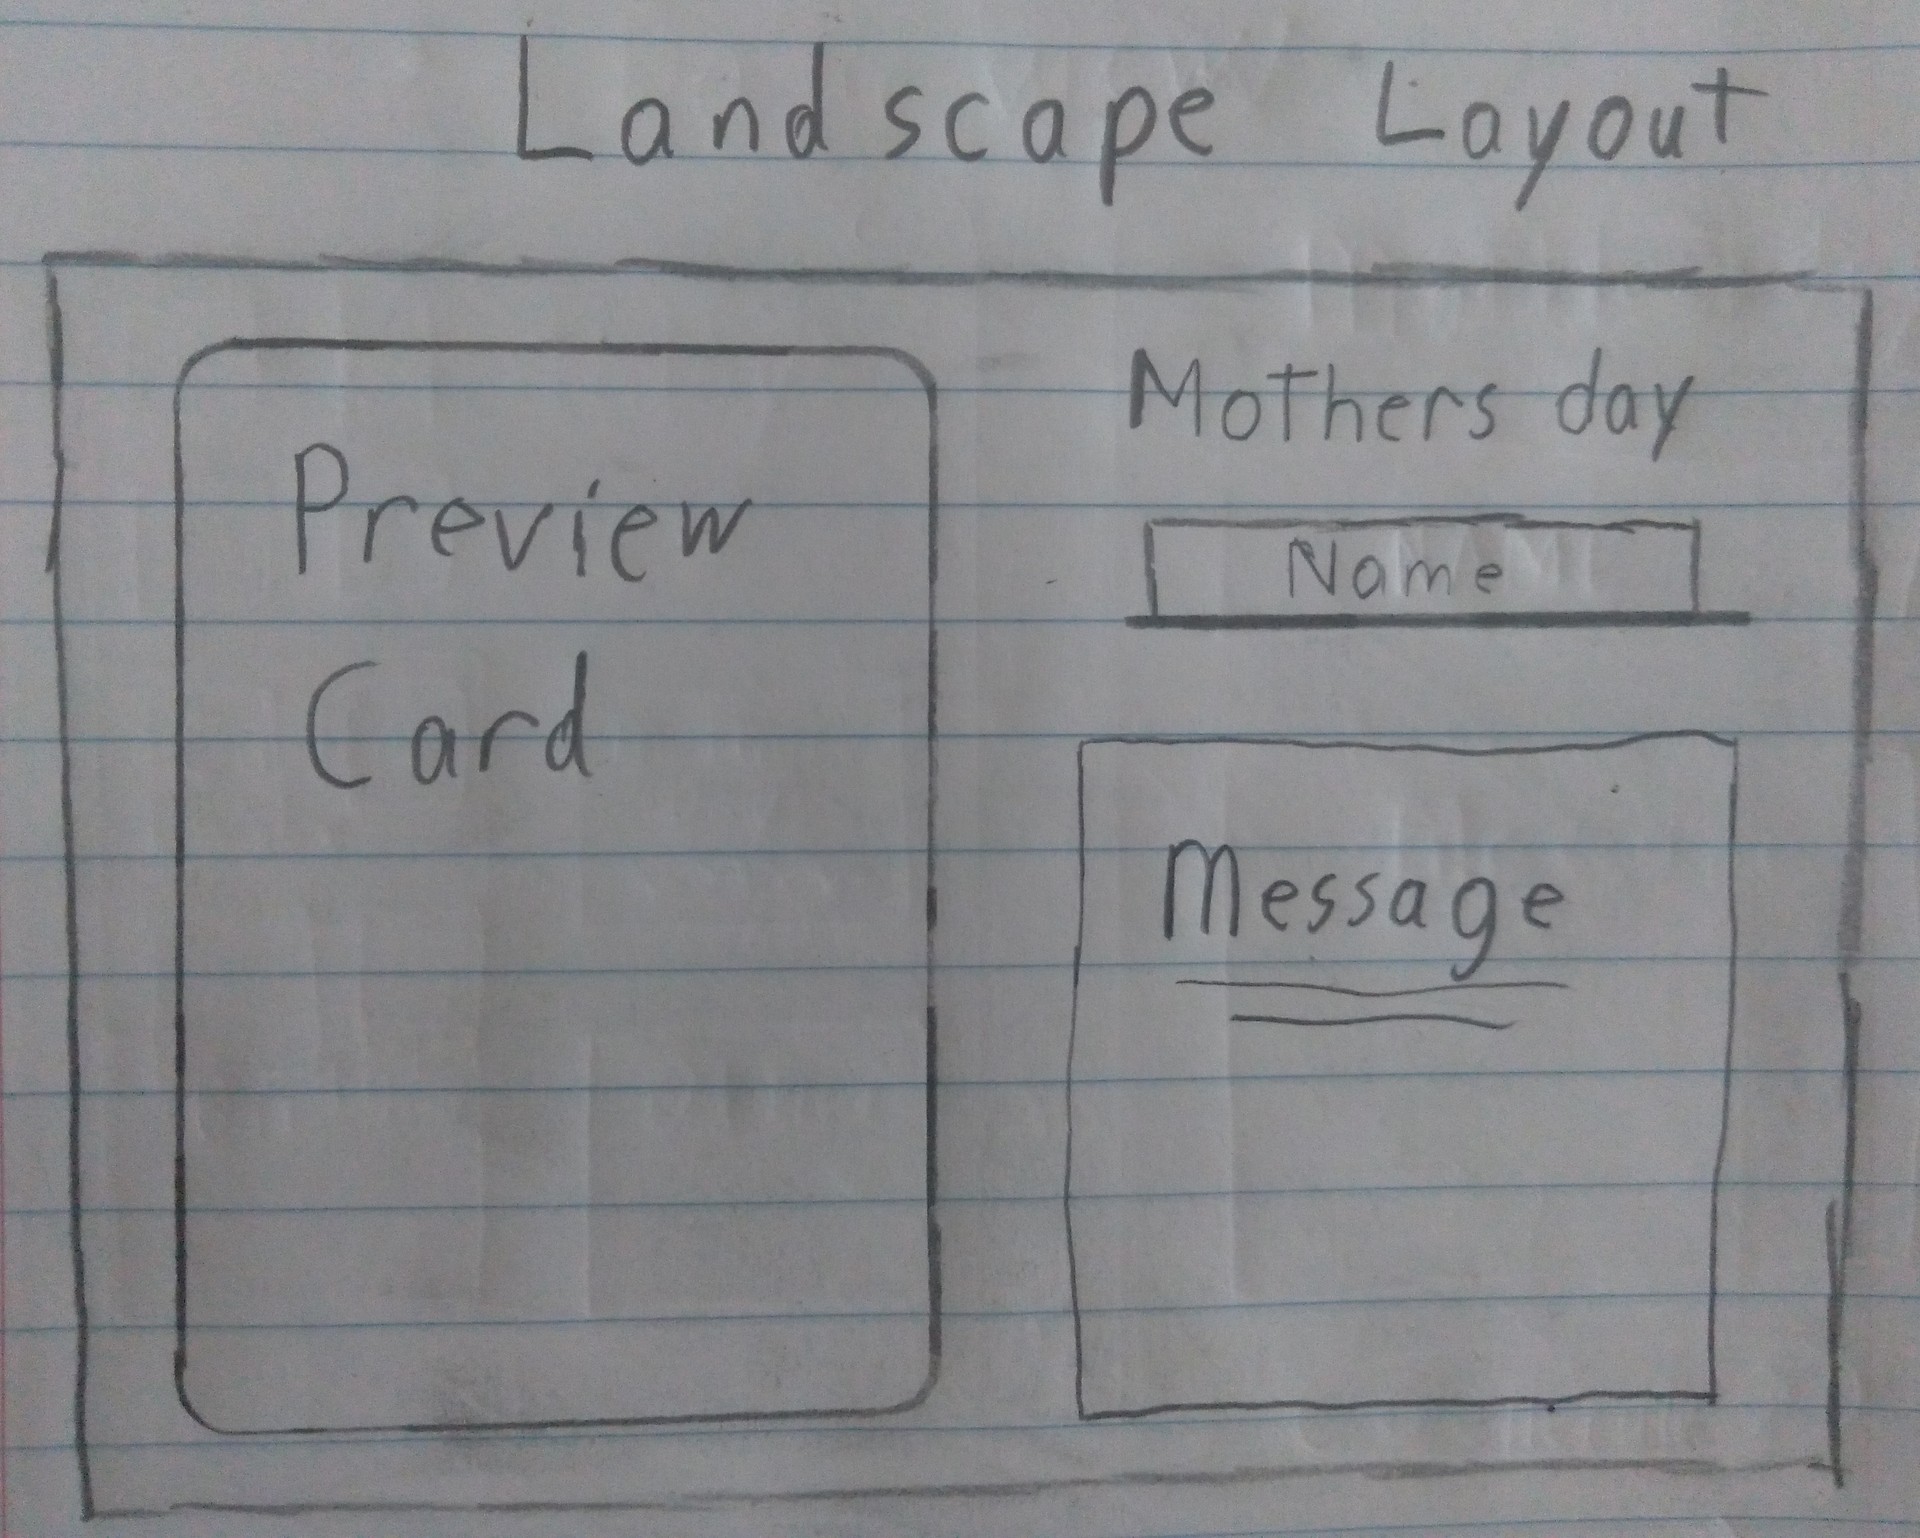 Landscape Layout
Preview
Card
Mothers day
Name
Message